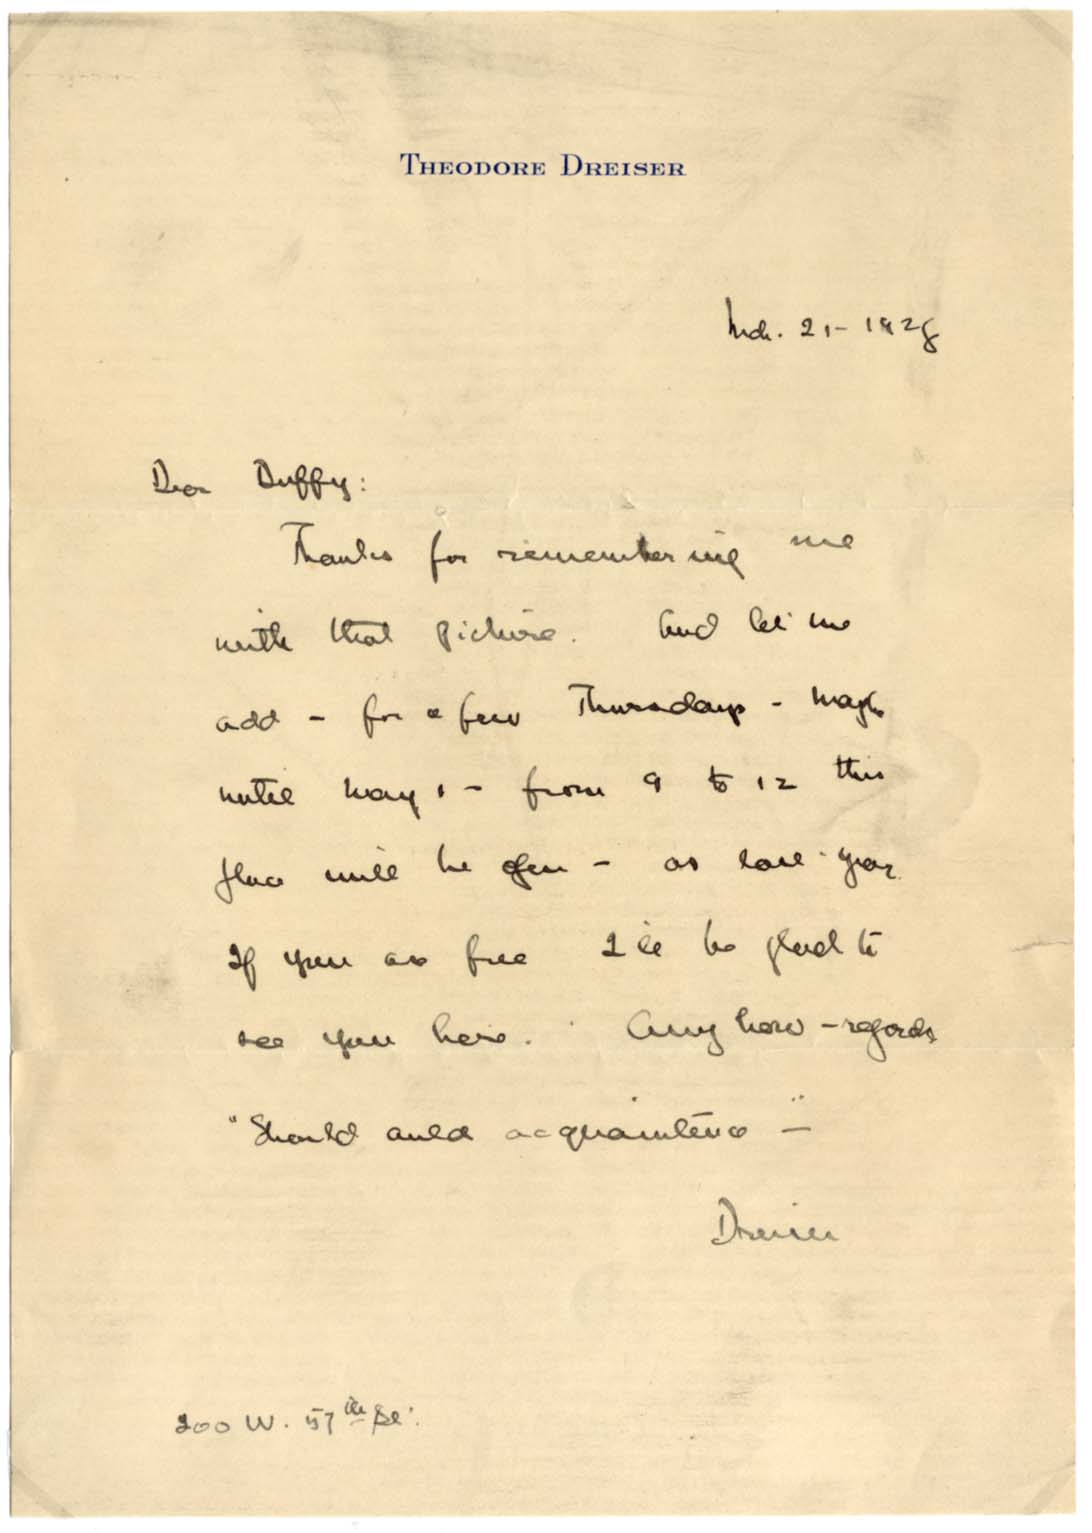 THEODORE DREISER
Mch. 21-1928
Dear Duffy:
Thanks for remembering me
with that picture. And let me
add - for a few Thursdays - maybe
until May 1 - from 9 to 12 this
place will be open - as last year.
If you are free I'll be glad to
see you here. Anyhow - regards
"Should auld acquaintance -"
Dreiser
200 W. 57th St.